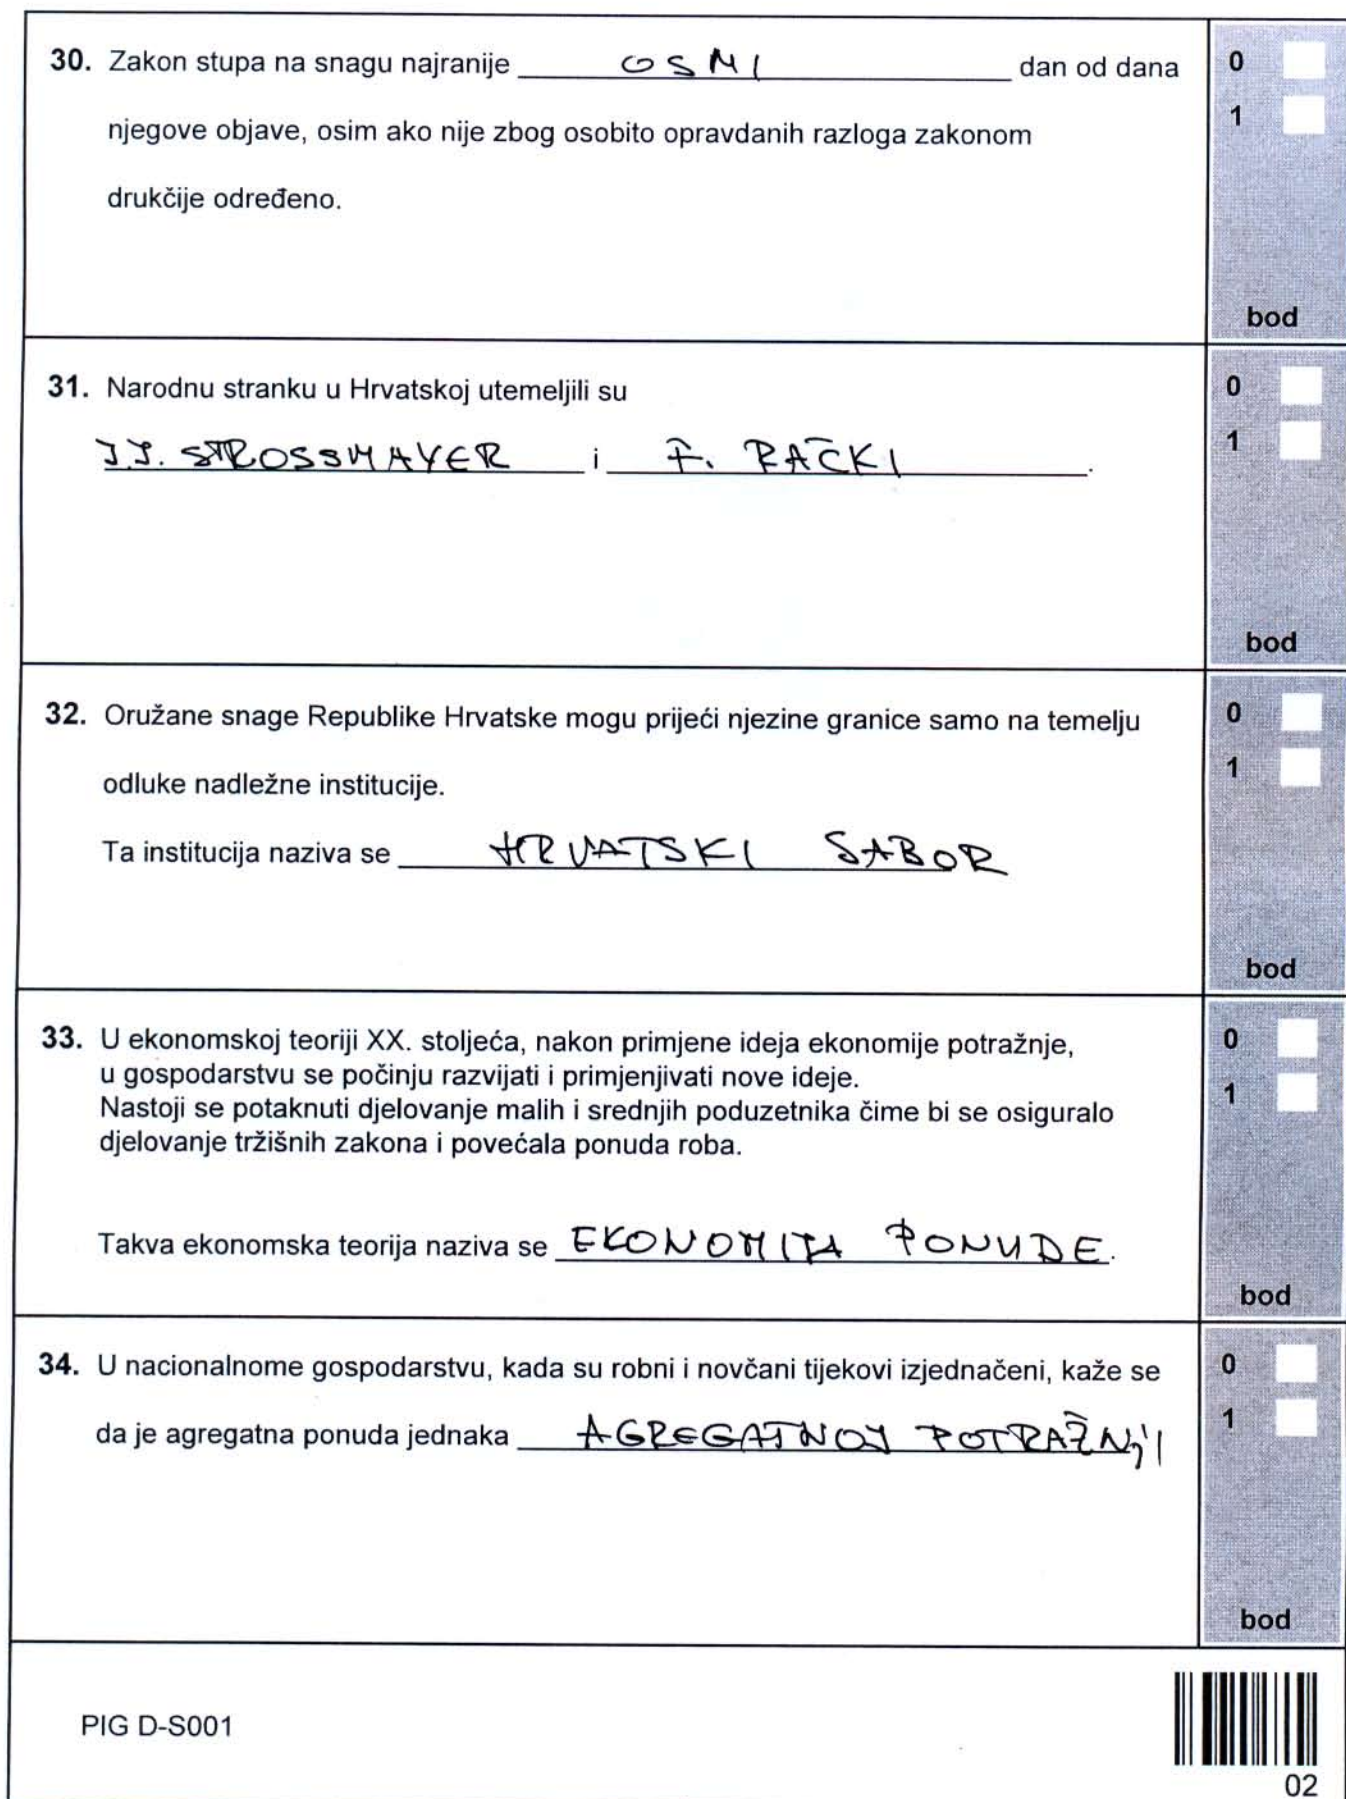 30. Zakon stupa na snagu najranije OSMI dan od dana
njegove objave, osim ako nije zbog osobito opravdanih razloga zakonom
drukčije određeno.
0
1
bod
31. Narodnu stranku u Hrvatskoj utemeljili su
J.J. STROSSMAYER i F. RAČKI.
0
1
bod
32. Oružane snage Republike Hrvatske mogu prijeći njezine granice samo na temelju
odluke nadležne institucije.
Ta institucija naziva se HRVATSKI SABOR
0
1
bod
33. U ekonomskoj teoriji XX. stoljeća, nakon primjene ideja ekonomije potražnje,
u gospodarstvu se počinju razvijati i primjenjivati nove ideje.
Nastoji se potaknuti djelovanje malih i srednjih poduzetnika čime bi se osiguralo
djelovanje tržišnih zakona i povećala ponuda roba.
Takva ekonomska teorija naziva se EKONOMIJA PONUDE.
0
1
bod
34. U nacionalnome gospodarstvu, kada su robni i novčani tijekovi izjednačeni, kaže se
da je agregatna ponuda jednaka AGREGATNOJ POTRAŽNJI
0
1
bod
PIG D-S001
02